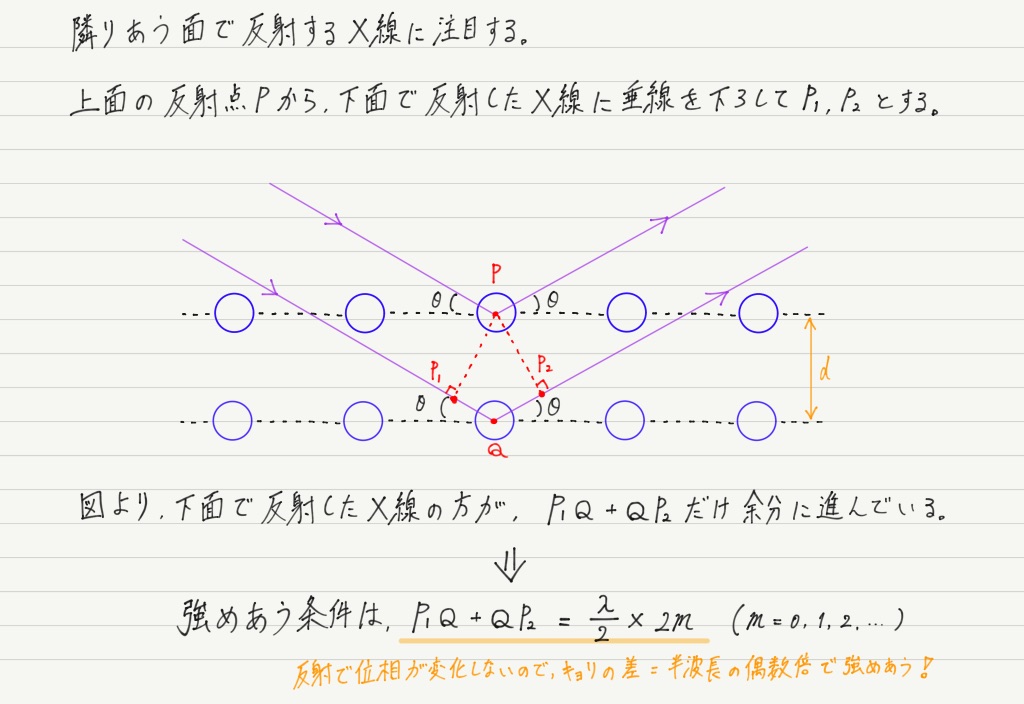 隣りあう面で反射するX線に注目する。
上面の反射点Pから、下面で反射したX線に垂線を下ろしてP₁, P₂とする。
P
θ θ
P₁ P₂
d
θ θ
Q
図より、下面で反射したX線の方が、P₁Q + QP₂ だけ余分に進んでいる。
⇓
強めあう条件は、P₁Q + QP₂ = λ/2 × 2m (m = 0, 1, 2, …)
反射で位相が変化しないので、キョリの差 = 半波長の偶数倍で強めあう!